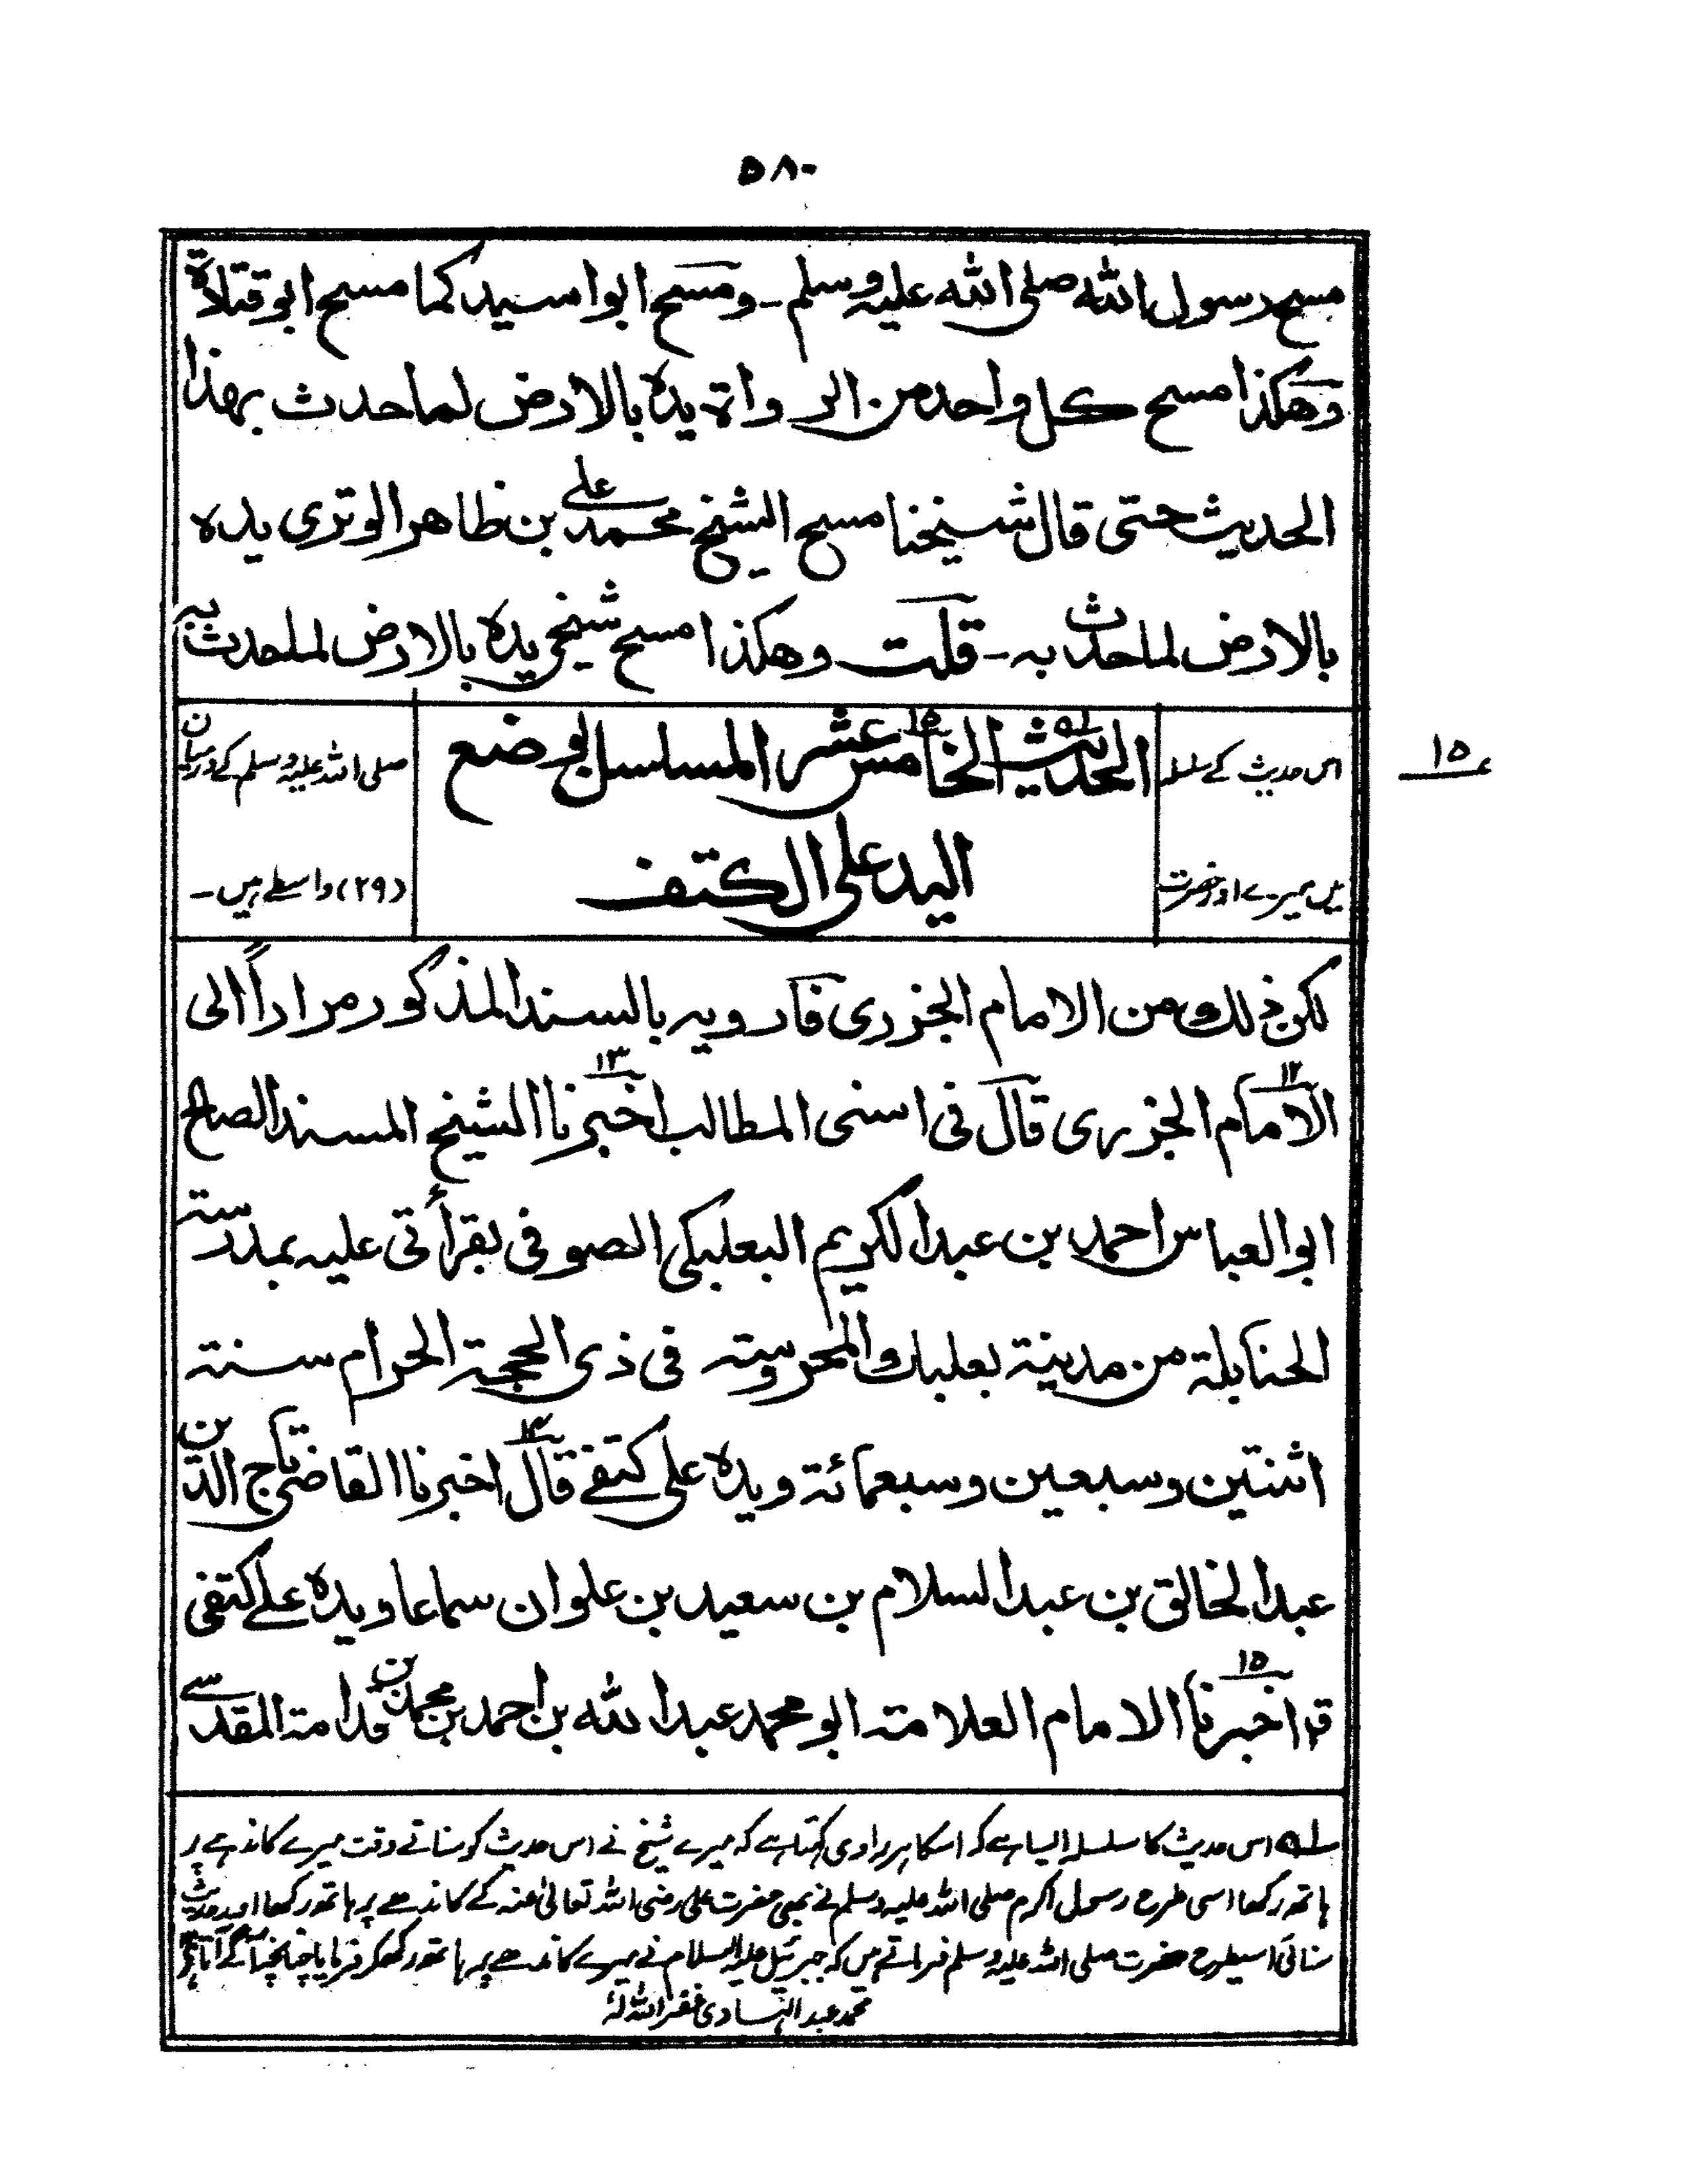 ٥٨٠
مسح رسول الله صلى الله عليه وسلم ـ ومسح ابواسيد كما مسح ابوقتادة
وهكذا مسح كل واحد من الرواة يده بالارض لما حدث بهذا
الحديث حتى قال شيخنا مسح الشيخ محمد على بن ظاهر الوترى يده
بالارض لما حدث به ـ قلت وهكذا مسح شيخى يده بالارض لما حدث به
١٥
الحديث الخامس عشر المسلسل بوضع
اليد على الكتف
اس حدیث کے سلسلہ
میں میرے اور حضرت
صلی اللہ علیہ وسلم کے درمیان
(۲۹) واسطے ہیں۔
لكن ذلك من الامام الجزرى فارويه بالسند المذكور مراراً الى
١٢ ١٣
الامام الجزرى قال فى اسنى المطالب اخبرنا الشيخ المسند الصالح
ابو العباس احمد بن عبد الكريم البعلبكى الصوفى بقرأتى عليه بمدرسته
الحنابلة من مدينة بعلبك المحروسته فى ذى الحجة الحرام سنته
١٤
اثنتين وسبعين وسبعمائة ويده على كتفے قال اخبرنا القاضى تاج الدين
عبد الخالق بن عبد السلام بن سعيد بن علوان سماعا ويده علے كتفى
١٥
قال اخبرنا الامام العلامته ابو محمد عبد الله بن احمد بن محمد بن قدامته المقدسے
اس حدیث کا سلسلہ ایسا ہے کہ اسکا ہر راوی کہتا ہے کہ میرے شیخ نے اس حدیث کو سناتے وقت میرے کاندھے پر
ہاتھ رکھا اسی طرح رسول اکرم صلی اللہ علیہ وسلم نے بھی حضرت علی رضی اللہ تعالیٰ عنہ کے کاندھے پر ہاتھ رکھا اور یہ حدیث
سنائی اسیطرح حضرت صلی اللہ علیہ وسلم فرماتے ہیں کہ جبرئیل علیہ السلام نے میرے کاندھے پر ہاتھ رکھکر فرمایا چنانچہ آگے آتا ہے
محمد عبد الہادی غفر اللہ لہٗ